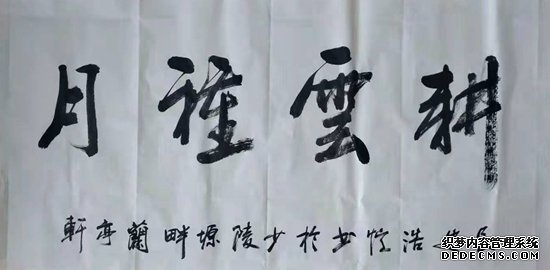 耕雲種月
浩书於少陵塬畔蘭亭軒
织梦内容管理系统
DEDECMS.COM